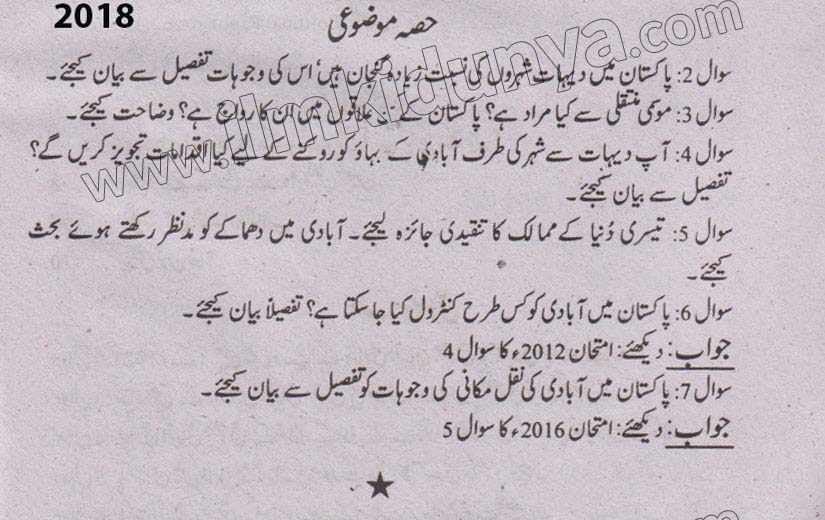 2018
حصہ موضوعی
سوال 2: پاکستان میں دیہات شہروں کی نسبت زیادہ گنجان ہیں، اس کی وجوہات تفصیل سے بیان کیجئے۔
سوال 3: موسمی منتقلی سے کیا مراد ہے؟ پاکستان کے علاقوں میں ان کا رواج ہے؟ وضاحت کیجئے۔
سوال 4: آپ دیہات سے شہر کی طرف آبادی کے بہاؤ کو روکنے کے لیے کیا اقدامات تجویز کریں گے؟
تفصیل سے بیان کیجئے۔
سوال 5: تیسری دُنیا کے ممالک کا تنقیدی جائزہ لیجئے۔ آبادی میں دھماکے کو مدنظر رکھتے ہوئے بحث
کیجئے۔
سوال 6: پاکستان میں آبادی کو کس طرح کنٹرول کیا جا سکتا ہے؟ تفصیلاً بیان کیجئے۔
جواب: دیکھئے: امتحان 2012ء کا سوال 4
سوال 7: پاکستان میں آبادی کی نقل مکانی کی وجوہات کو تفصیل سے بیان کیجئے۔
جواب: دیکھئے: امتحان 2016ء کا سوال 5
www.ilmkidunya.com